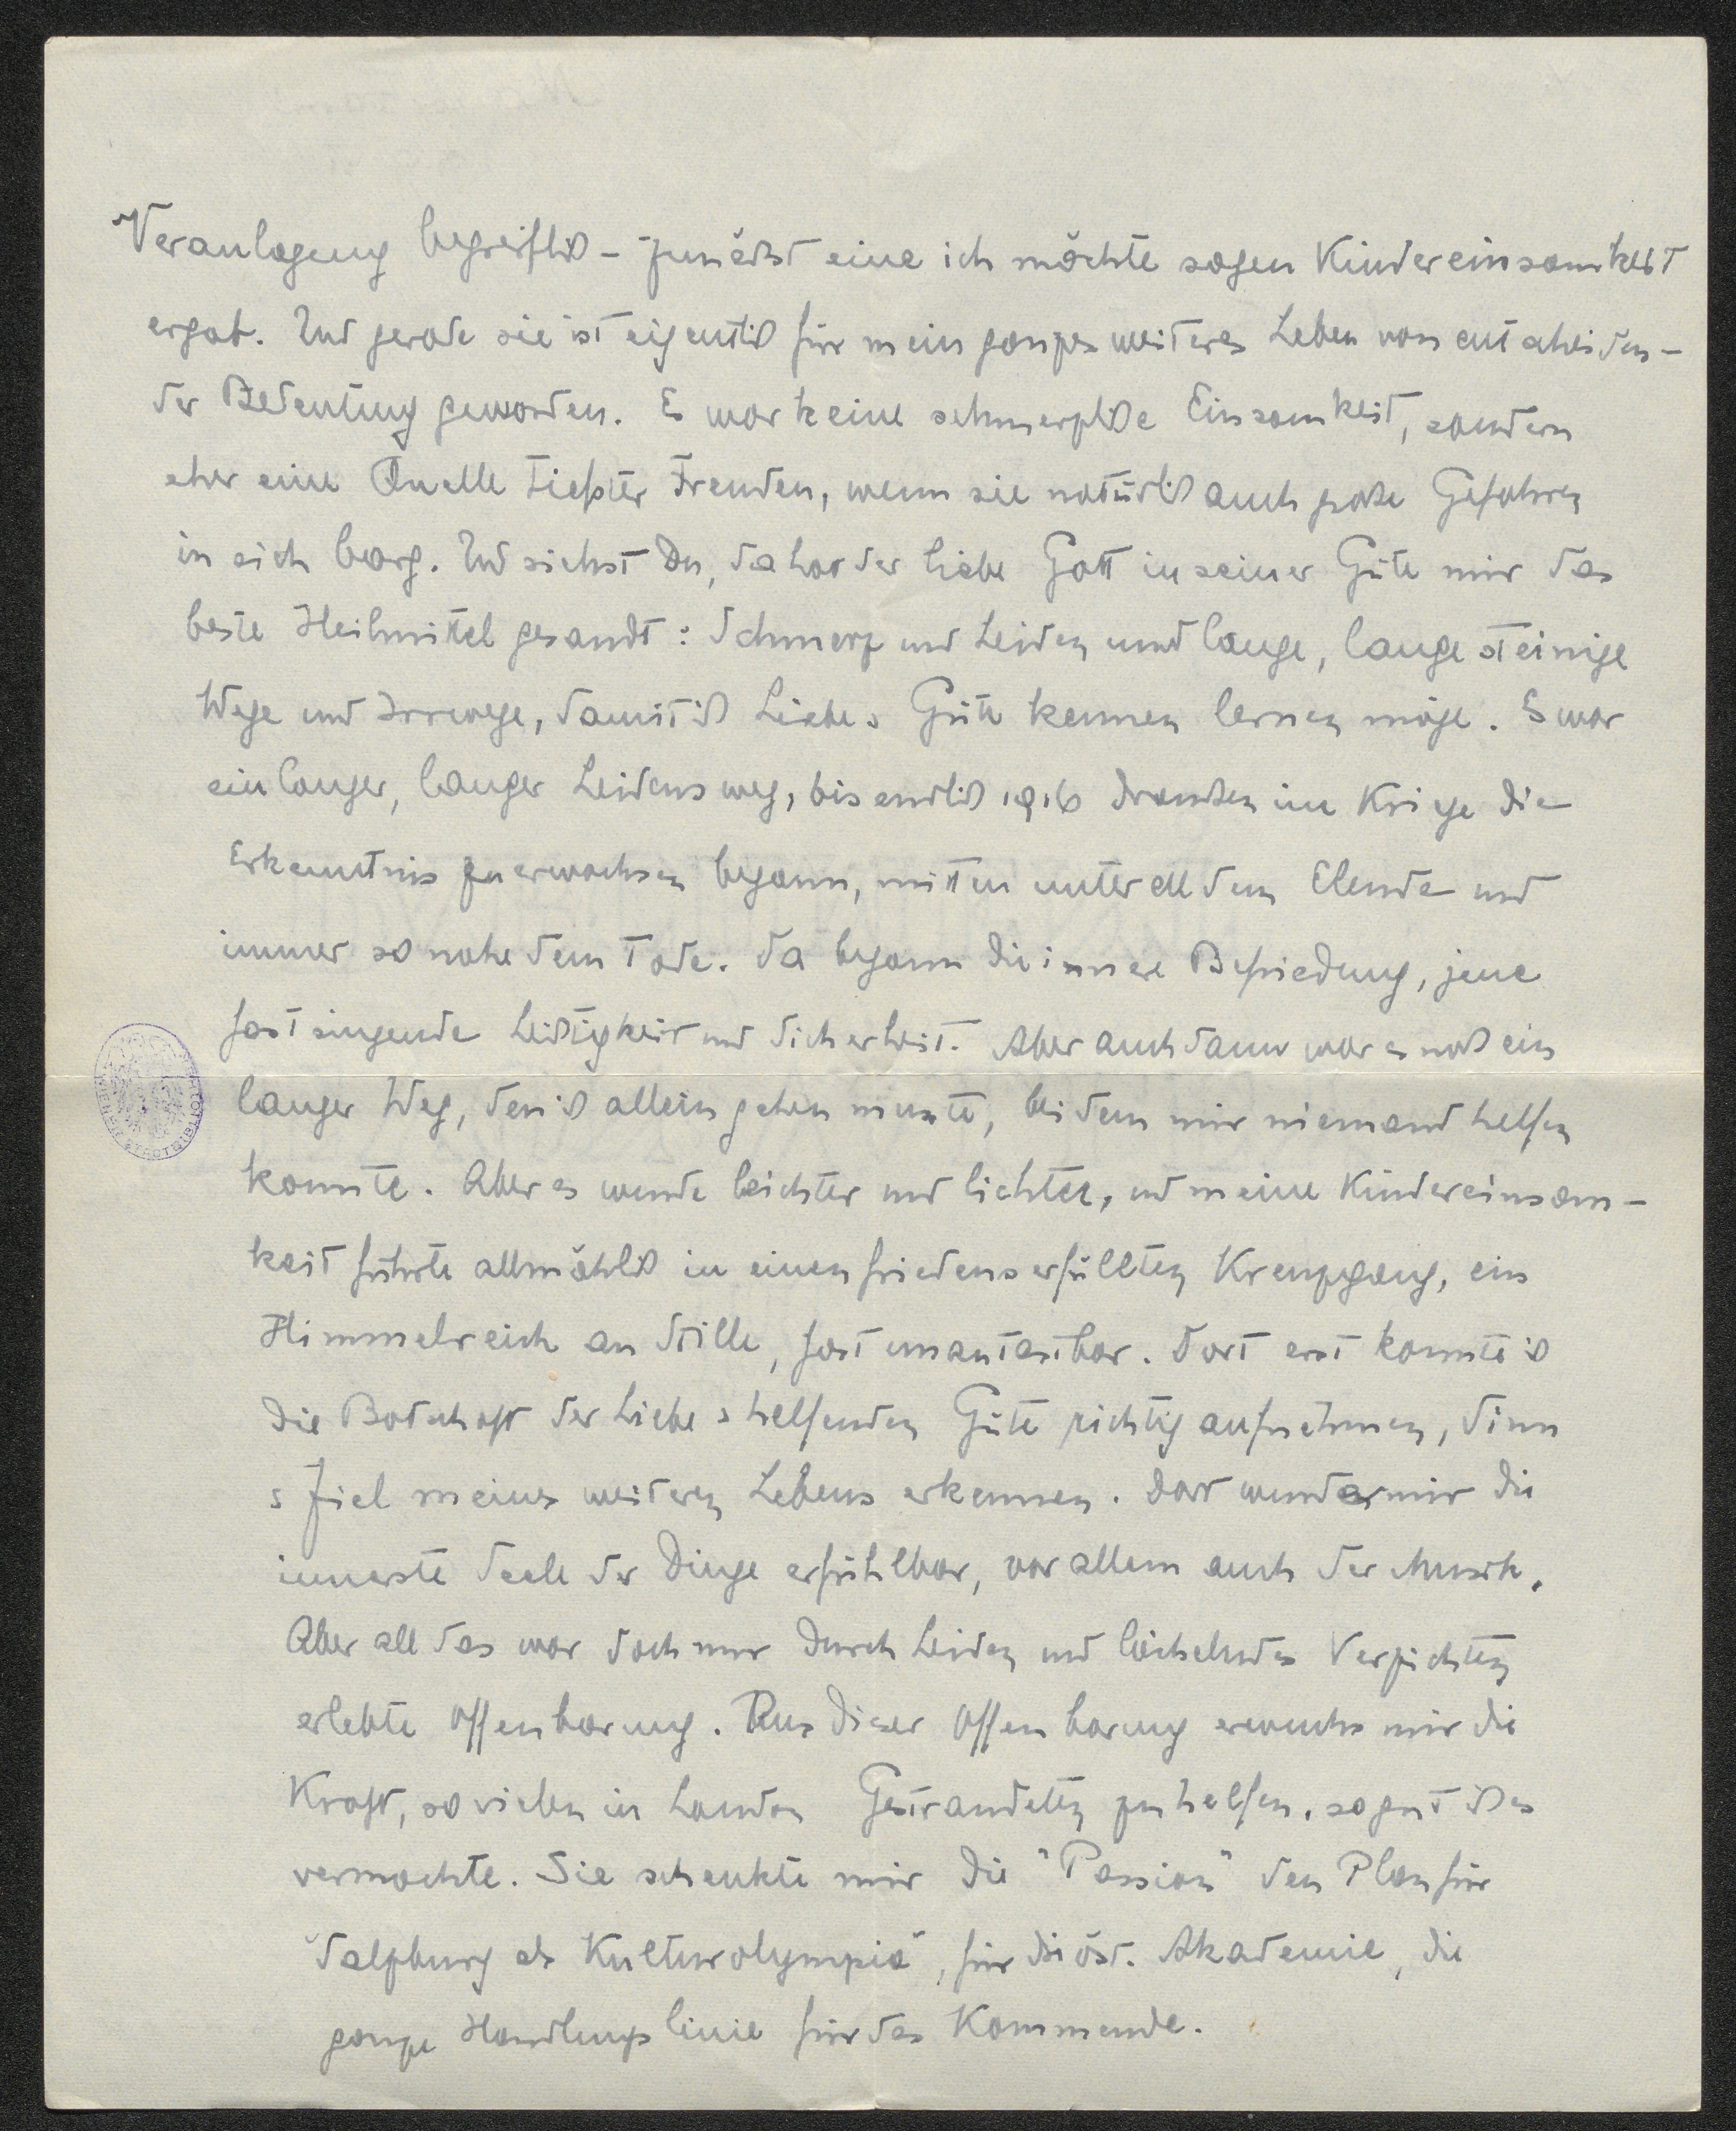 Veranlagung begreiflich – zunächst eine ich möchte sagen Kindereinsamkeit
ergab. Und gerade sie ist eigentlich für mein ganzes weiteres Leben von entscheiden-
der Bedeutung geworden. Es war keine schmerzliche Einsamkeit, sondern
eher eine Quelle tiefster Freuden, wenn sie natürlich auch große Gefahren
in sich barg. Und siehst Du, da hat der liebe Gott in seiner Güte mir das
beste Heilmittel gesandt: Schmerz und Leiden und lange, lange steinige
Wege und Irrwege, damit ich Liebe & Güte kennen lernen möge. Es war
ein langer, langer Leidensweg, bis endlich 1916 draußen im Kriege die
Erkenntnis zu erwachsen begann, mitten unter all dem Elende und
immer so nahe dem Tode. Da begann die innere Befriedung, jene
fast singende Leichtigkeit und Sicherheit. Aber auch dann war es noch ein
langer Weg, den ich allein gehen musste, bei dem mir niemand helfen
konnte. Aber es wurde leichter und lichter, und meine Kindereinsam-
keit führte allmählich in einen friedenserfüllten Kreuzgang, ein
Himmelreich an Stille, fast unantastbar. Dort erst konnte ich
die Botschaft der Liebe & helfenden Güte richtig aufnehmen, Sinn
& Ziel meines weiteren Lebens erkennen. Dort wurde mir die
innerste Seele der Dinge erfühlbar, vor allem auch der Musik.
Aber all das war doch nur durch Leiden und lächelndes Verzichten
erlebte Offenbarung. Aus dieser Offenbarung erwuchs mir die
Kraft, so vielen in London Gestrandeten zu helfen, so gut ich es
vermochte. Sie schenkte mir die "Passion" den Plan für
"Salzburg als Kulturolympia", für die öst. Akademie, die
ganze Handlungslinie für das Kommende.